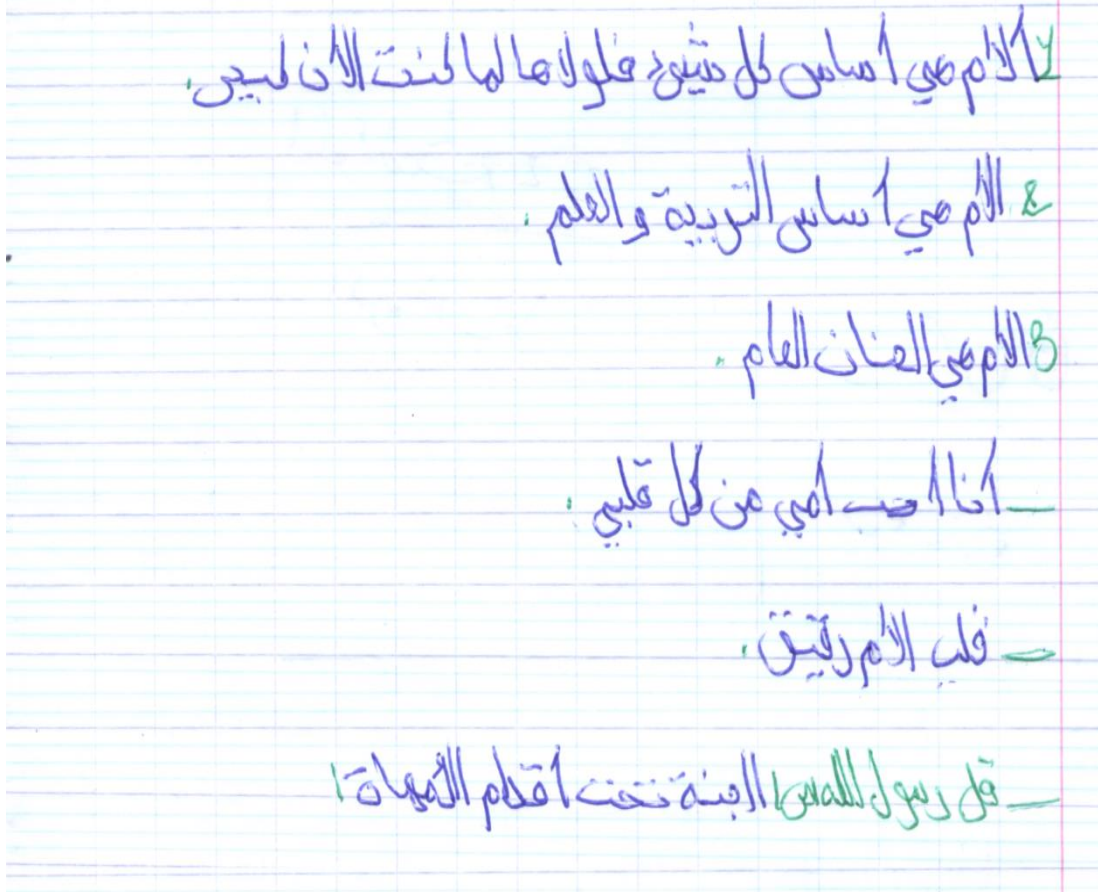 1 الأم هي أساس كل شيئ فلولاها لما كنت الأن كبير.
2 الأم هي أساس التربية والعلم.
3 الأم هي الحنان العام.
_ أنا أحب أمي من كل قلبي.
_ قلب الأم رقيق.
_ قل رسول الله ص االجنة تحت أقدام الأمهاة ا